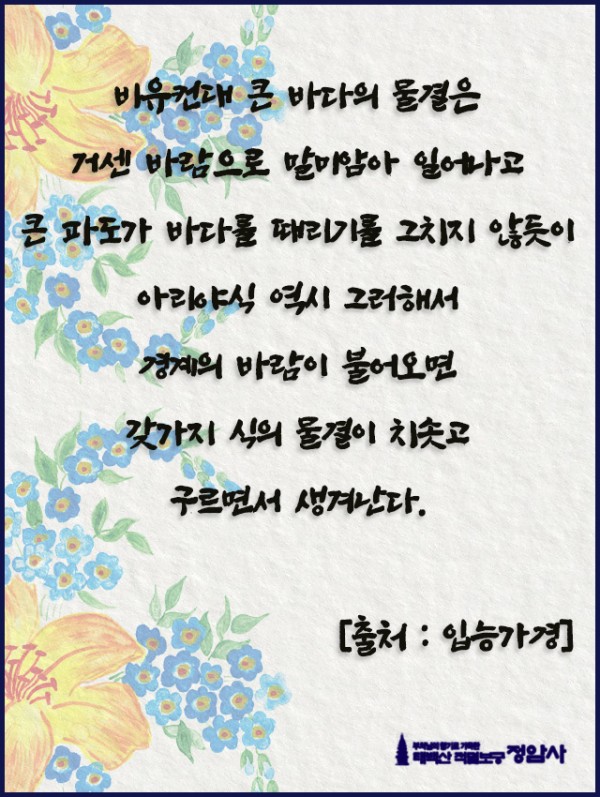 비유컨대 큰 바다의 물결은
거센 바람으로 말미암아 일어나고
큰 파도가 바다를 때리기를 그치지 않듯이
아리야식 역시 그러해서
경계의 바람이 불어오면
갖가지 식의 물결이 치솟고
구르면서 생겨난다.
[출처 : 입능가경]
부처님의 향기로 가득한
태백산 적멸보궁 정암사